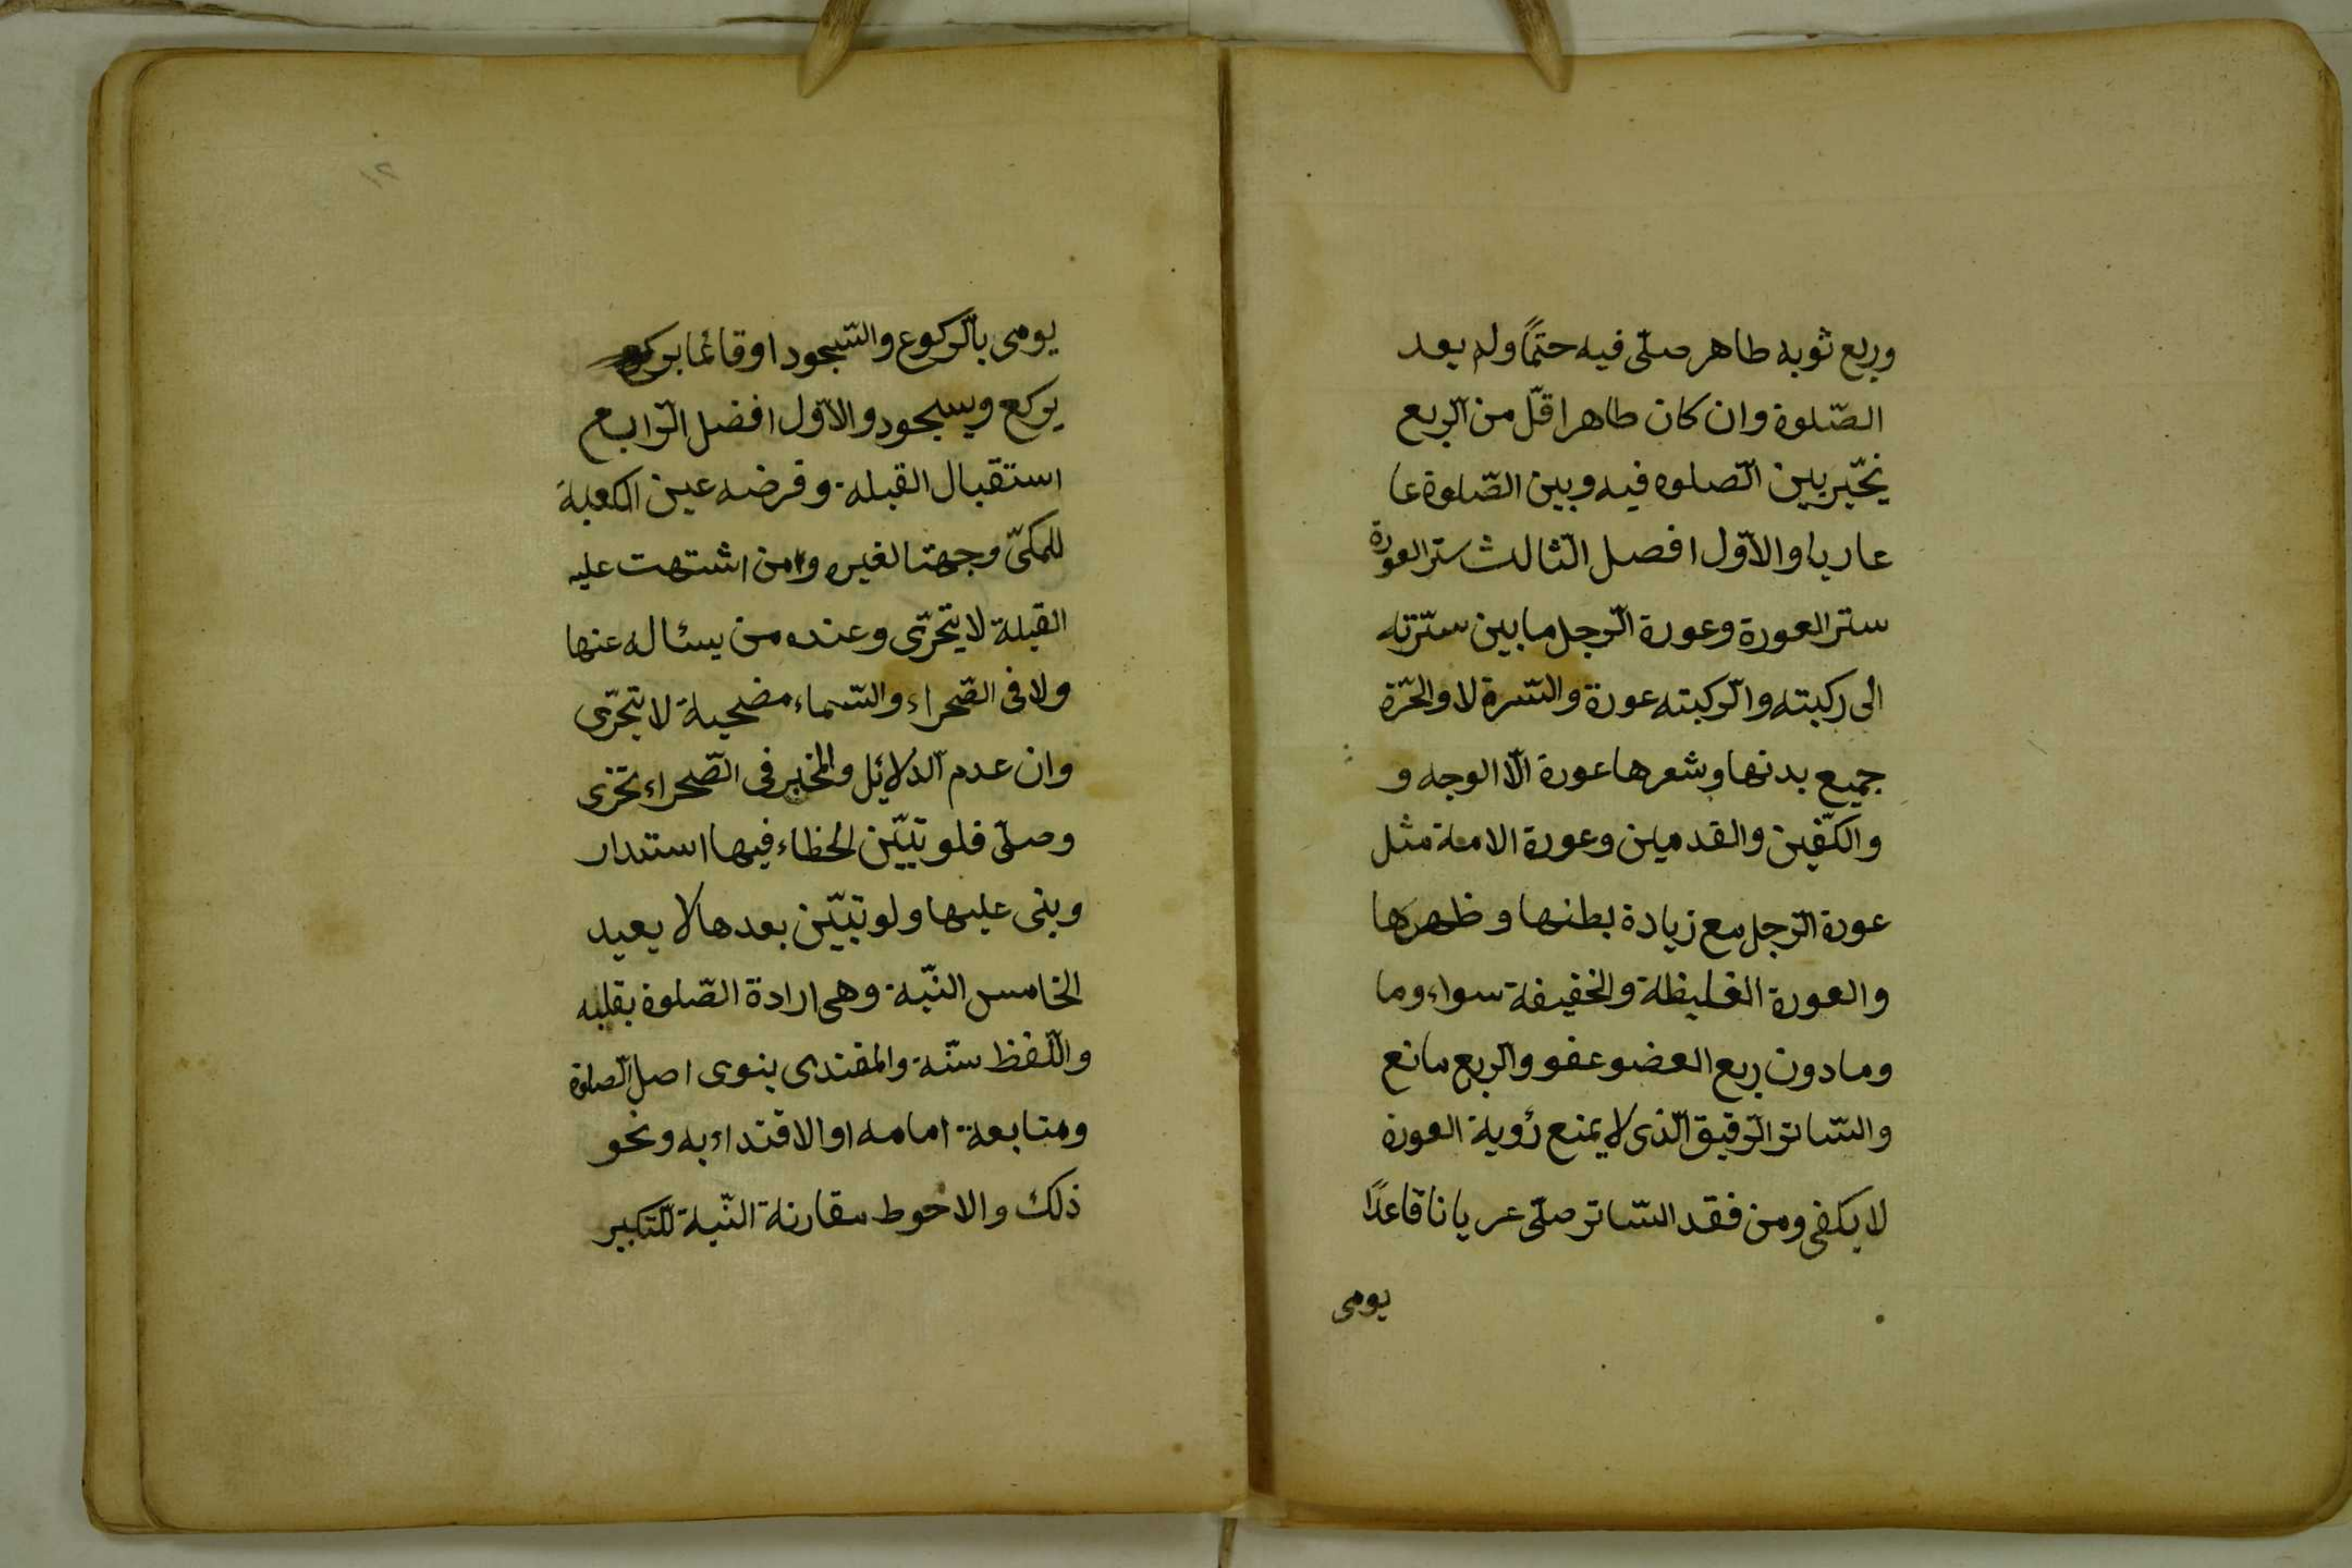 وربع ثوبه طاهر صلّى فيه حتمًا ولم يعد
الصّلوة وان كان طاهرا قلّ من الربع
يخيّر بين الصّلوه فيه وبين الصّلوة عا
عاريا والاوّل افضل الثّالث ستر العورة
ستر العورة وعورة الرّجل ما بين ستّرته
الى ركبته والركبته عورة والسّرة لا والحرّة
جميع بدنها وشعرها عورة الّا الوجه و
والكفّين والقدمين وعورة الامة مثل
عورة الرّجل مع زيادة بطنها وظهرها
والعورة الغليظة والخفيفة سواء وما
وما دون ربع العضو عفو والربع مانع
والسّاتر الرّقيق الّذى لا يمنع رؤية العورة
لا يكفى ومن فقد السّاتر صلّى عريانا قاعدًا
يومى
١٢
يومى بالرّكوع والسّجود او قائما يركع
يركع ويسجود والاوّل افضل الرّابع
استقبال القبلة وفرضه عين الكعبة
للمكىّ وجهتا لغيره ومن اشتهت عليه
القبلة لا يتحرّى وعنده من يسئاله عنها
ولا فى الصّحراء والسّماء مضحية لا يتحرّى
وان عدم الدّلائل والمخبر فى الصّحراء تحرى
وصلّى فلو تبيّن الخطاء فيها استدار
وبنى عليها ولو تبيّن بعدها لا يعيد
الخامس النيّة وهى ارادة الصّلوة بقلبه
واللّفظ سنّة والمقتدى ينوى اصل الصلوة
ومتابعة امامه او الاقتداء به ونحو
ذلك والاحوط مقارنة النّية للتّكبير